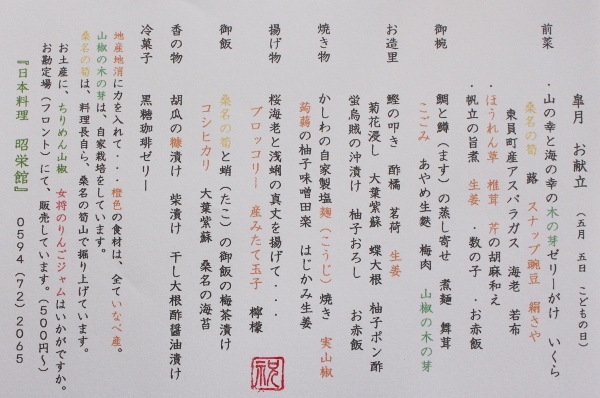 皐月　お献立　（五月　五日　こどもの日）
前菜　・山の幸と海の幸の木の芽ゼリーがけ　いくら
桑名の筍　蕗　スナップ豌豆　絹さや
東員町産アスパラガス　海老　若布
・ほうれん草　椎茸　芹の胡麻和え
・帆立の旨煮　生姜　・数の子　・お赤飯
御椀　鯛と鱒（ます）の蒸し寄せ　煮麺　舞茸
こごみ　あやめ生麩　梅肉　山椒の木の芽
お造里　鰹の叩き　酢橘　茗荷　生姜
菊花浸し　大葉紫蘇　蝶大根　柚子ポン酢
蛍烏賊の沖漬け　柚子おろし　お赤飯
焼き物　かしわの自家製塩麹（こうじ）焼き　実山椒
蒟蒻の柚子味噌田楽　はじかみ生姜
揚げ物　桜海老と浅蜊の真丈を揚げて・・・
ブロッコリー　産みたて玉子　檸檬
御飯　桑名の筍と蛸（たこ）の御飯の梅茶漬け
コシヒカリ　大葉紫蘇　桑名の海苔
香の物　胡瓜の糠漬け　柴漬け　干し大根酢醤油漬け
冷菓子　黒糖珈琲ゼリー
祝
地産地消に力を入れて・・・橙色の食材は、全ていなべ産。
山椒の木の芽は、自家栽培をしています。
桑名の筍は、料理長自ら、桑名の筍山で掘り上げています。
お土産に、ちりめん山椒　女将のりんごジャムはいかがですか。
お勘定場（フロント）にて、販売しています。（５００円〜）
『日本料理　昭栄館』　０５９４（７２）２０６５